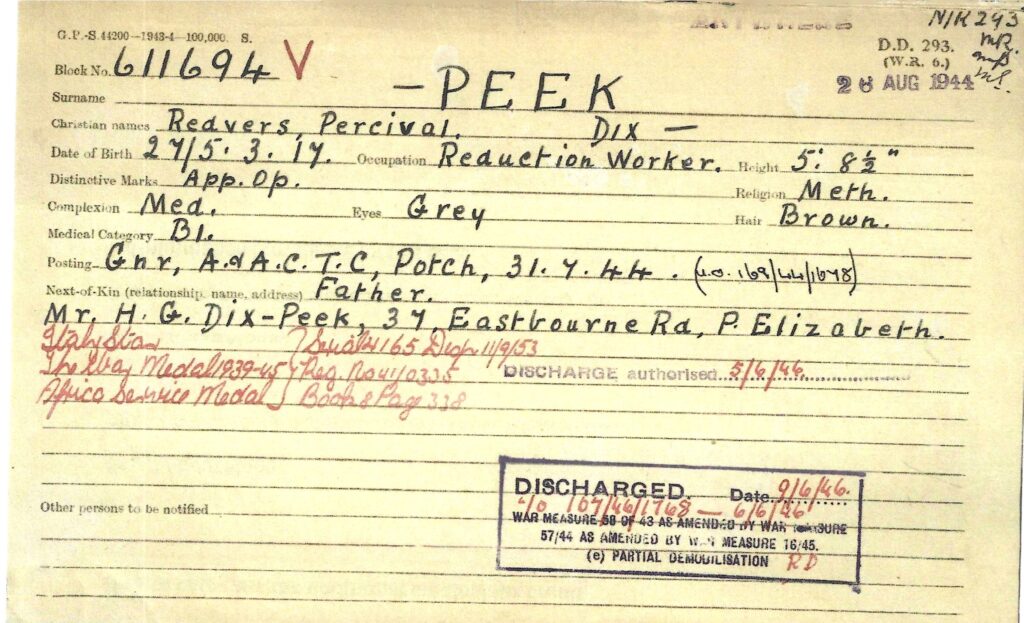 N/K 293
G.P.-S.44200—1943-4—100,000. S.
D.D. 293.
(W.R. 6.)
Block No. 611694 V
26 AUG 1944
Surname — PEEK
Christian names Redvers, Percival. DIX —
Date of Birth 27/5.3.17. Occupation Reduction Worker. Height 5' 8½"
Distinctive Marks App. Op. Religion Meth.
Complexion Med. Eyes Grey Hair Brown.
Medical Category B1.
Posting Gnr, A.dA.C.T.C, Potch, 31.7.44. (u.o. 169/44/1678)
Next-of-Kin (relationship, name, address) Father.
Mr. H. G. Dix-Peek, 37, Eastbourne Rd, P. Elizabeth.
Italy Star Serial 165 11/9/53
The War Medal 1939-45 Reg. No 41/0335 DISCHARGE authorised 5/6/46
Africa Service Medal Book 8 Page 338
DISCHARGED. Date 9/6/46.
Other persons to be notified
107/46/1768 — 6/6/46
WAR MEASURE 58 OF 43 AS AMENDED BY WAR MEASURE
57/44 AS AMENDED BY WAR MEASURE 16/45.
(e) PARTIAL DEMOBILISATION RD